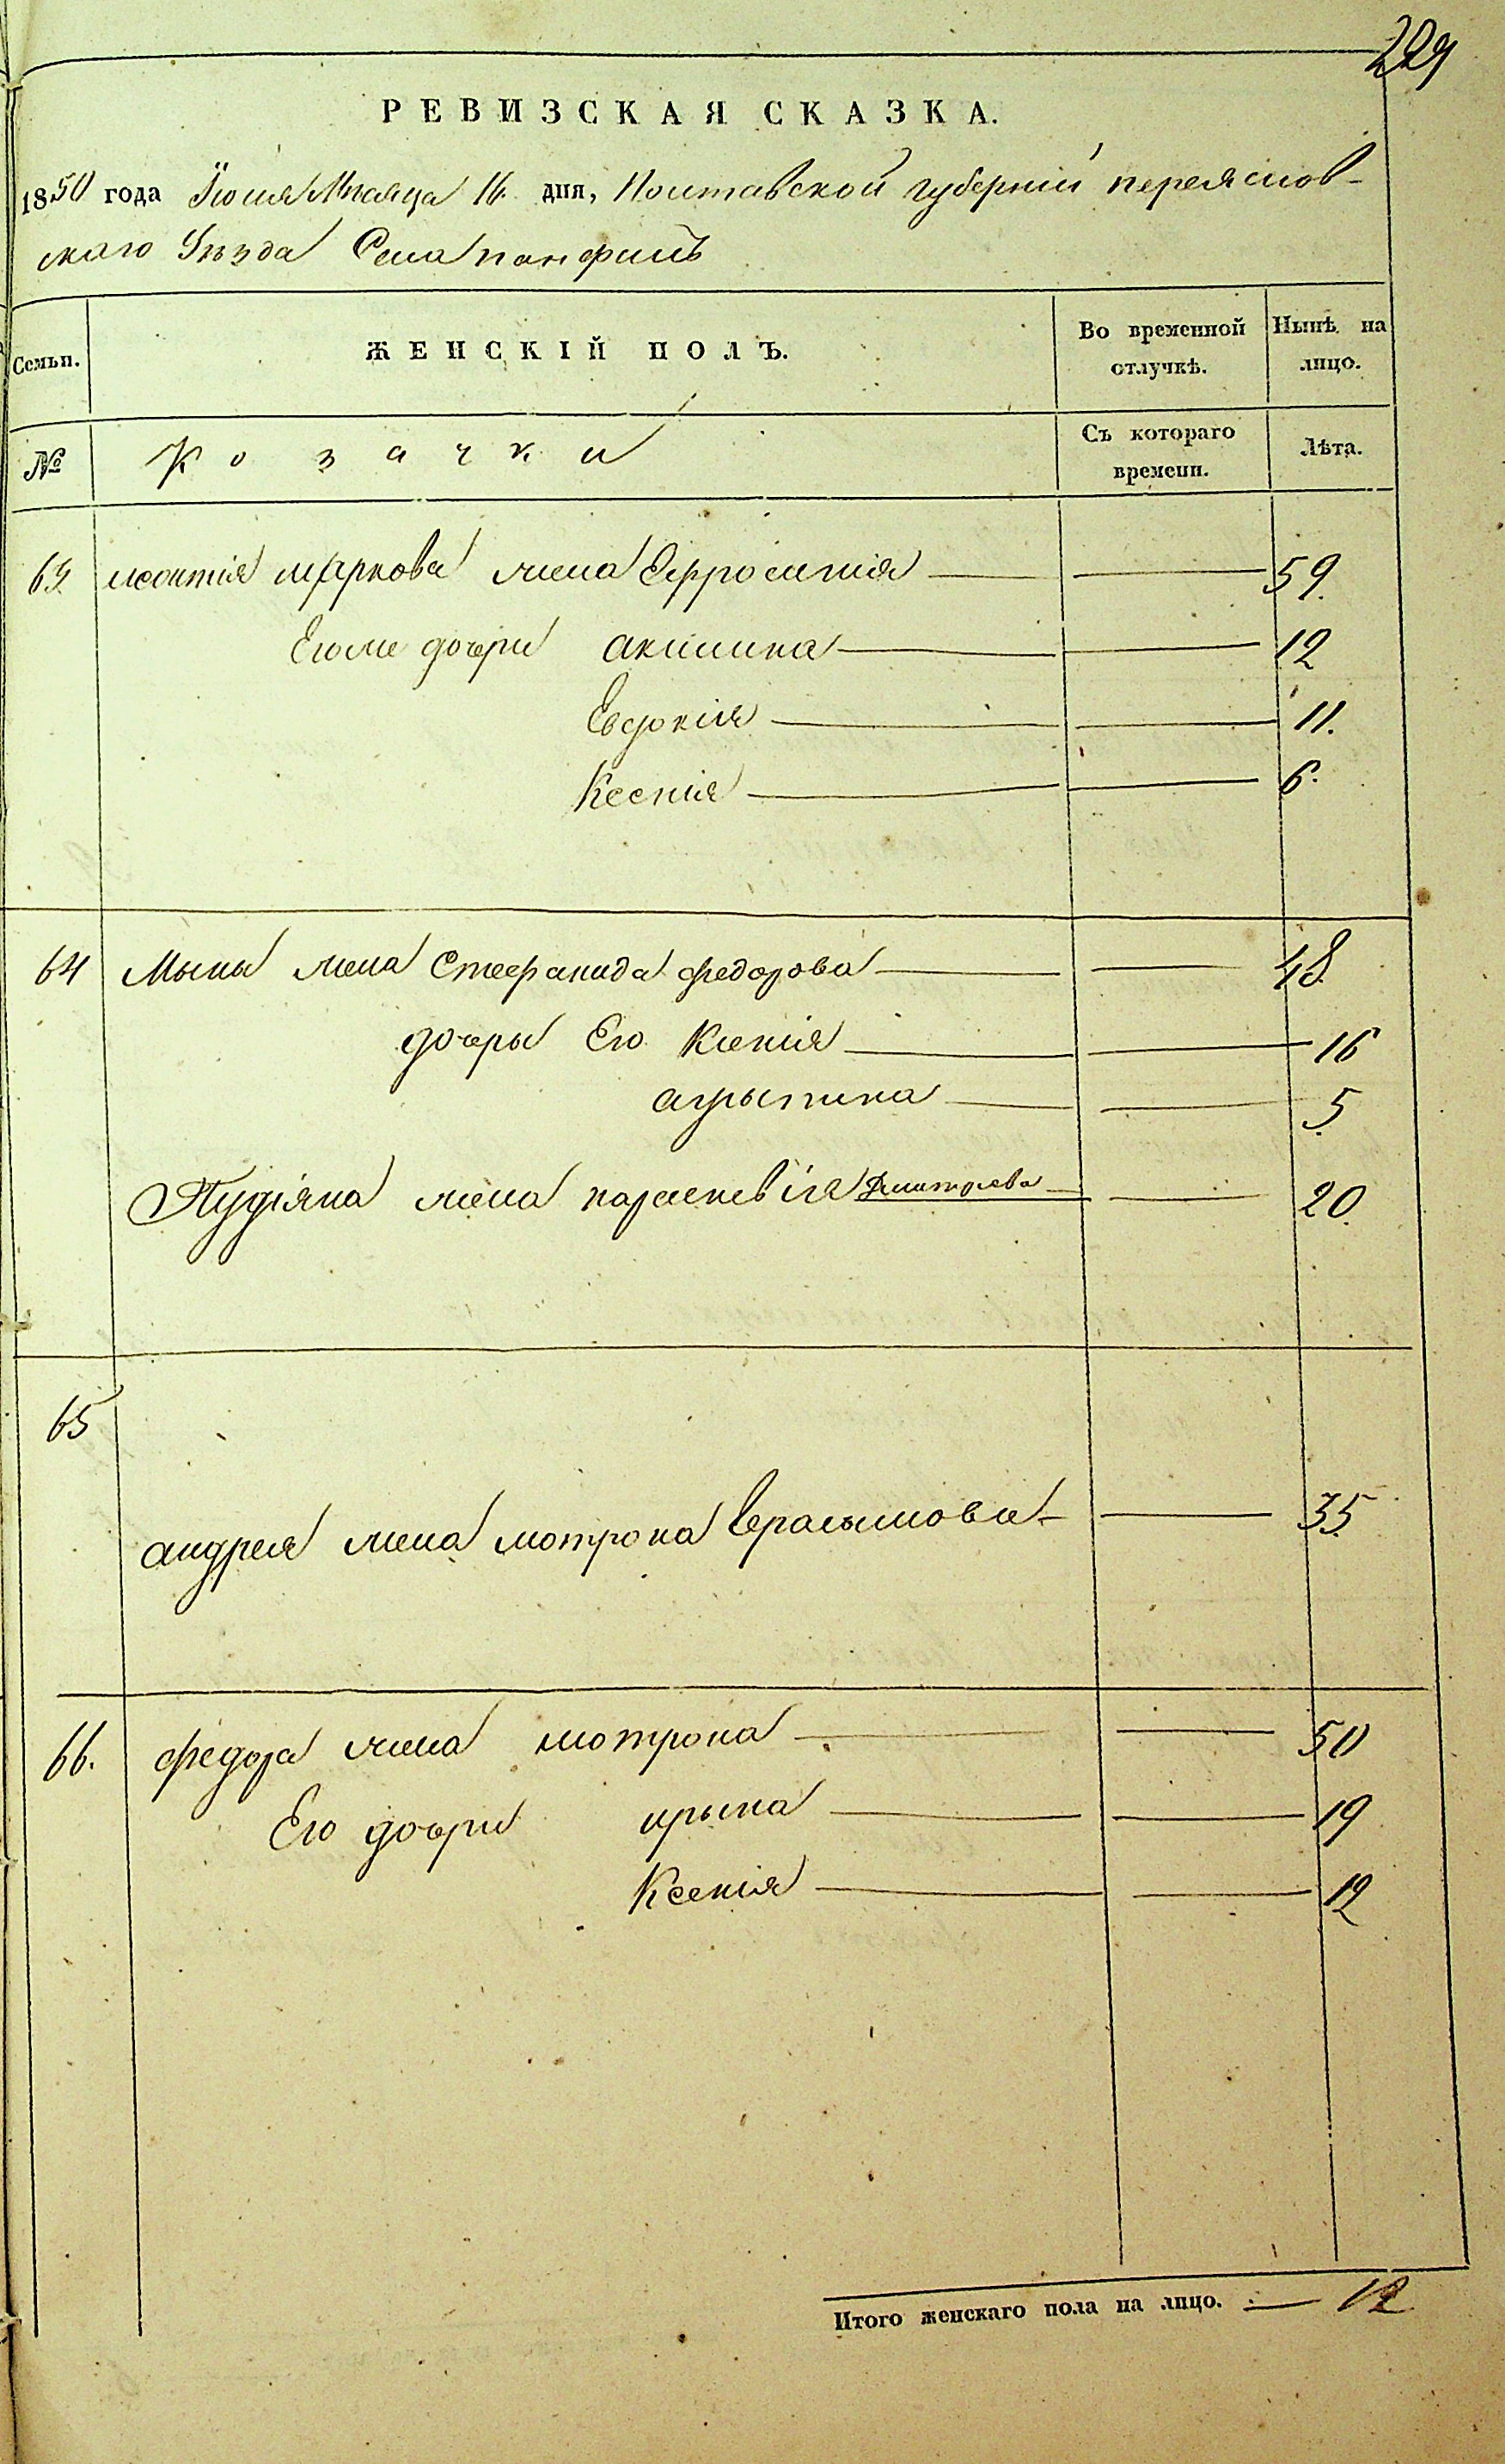 229
РЕВИЗСКАЯ СКАЗКА.
1850 года Іюля Мѣсяца 16 дня, Полтавской губерніи переяслов-
скаго Уѣзда Села панфилъ
Семьи.
ЖЕНСКІЙ ПОЛЪ.
Во временной отлучкѣ.
Нынѣ на лицо.
№
Козачки
Съ котораго времени.
Лѣта.
63 леонтія маркова жена Ефросинія 59.
Его дочери акилина 12
Евдокія 11.
Ксенія 6.
64 Мыны жена Стефанида федорова 48.
дочеры Его Ксенія 16
агрыпина 5
жена параскевія Дмитрова 20.
65
андрея жена мотрона Герасымова 35
66. федора жена мотрона 50
Его дочери ирына 19
Ксенія 12
Итого женскаго пола на лицо. 12